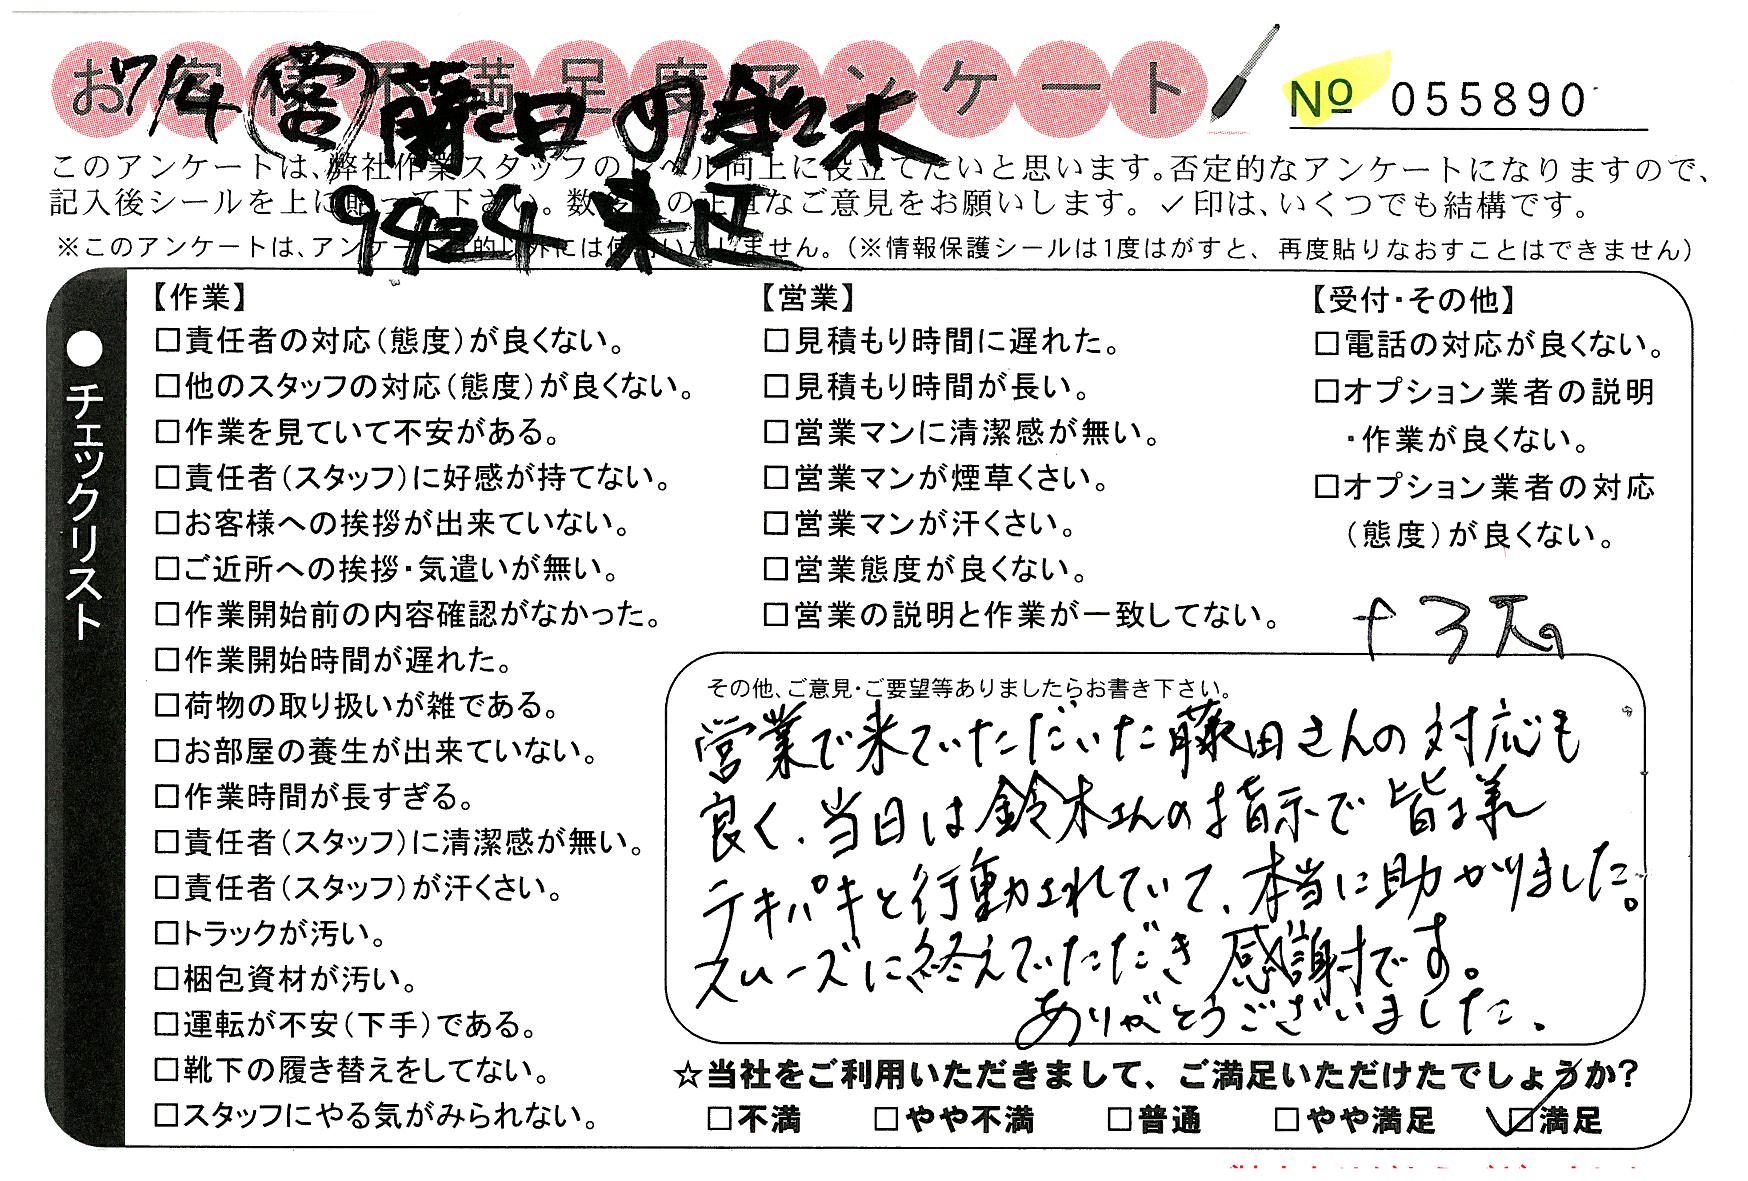 お客様不満足度アンケート
7/4 営 藤田 の 鈴木
No 055890
このアンケートは、弊社作業スタッフのレベル向上に役立てたいと思います。否定的なアンケートになりますので、
記入後シールを上に貼って下さい。数多くの正直なご意見をお願いします。✓印は、いくつでも結構です。
※このアンケートは、アンケート目的以外には使用いたしません。（※情報保護シールは1度はがすと、再度貼りなおすことはできません）
●チェックリスト
【作業】
□責任者の対応（態度）が良くない。
□他のスタッフの対応（態度）が良くない。
□作業を見ていて不安がある。
□責任者（スタッフ）に好感が持てない。
□お客様への挨拶が出来ていない。
□ご近所への挨拶・気遣いが無い。
□作業開始前の内容確認がなかった。
□作業開始時間が遅れた。
□荷物の取り扱いが雑である。
□お部屋の養生が出来ていない。
□作業時間が長すぎる。
□責任者（スタッフ）に清潔感が無い。
□責任者（スタッフ）が汗くさい。
□トラックが汚い。
□梱包資材が汚い。
□運転が不安（下手）である。
□靴下の履き替えをしてない。
□スタッフにやる気がみられない。
【営業】
□見積もり時間に遅れた。
□見積もり時間が長い。
□営業マンに清潔感が無い。
□営業マンが煙草くさい。
□営業マンが汗くさい。
□営業態度が良くない。
□営業の説明と作業が一致してない。
【受付・その他】
□電話の対応が良くない。
□オプション業者の説明
・作業が良くない。
□オプション業者の対応
（態度）が良くない。
その他、ご意見・ご要望等ありましたらお書き下さい。
営業で来ていただいた藤田さんの対応も
良く、当日は鈴木さんの指示で皆様
テキパキと行動されていて、本当に助かりました。
スムーズに終えていただき感謝です。
ありがとうございました。
☆当社をご利用いただきまして、ご満足いただけたでしょうか?
□不満 □やや不満 □普通 □やや満足 ☑満足